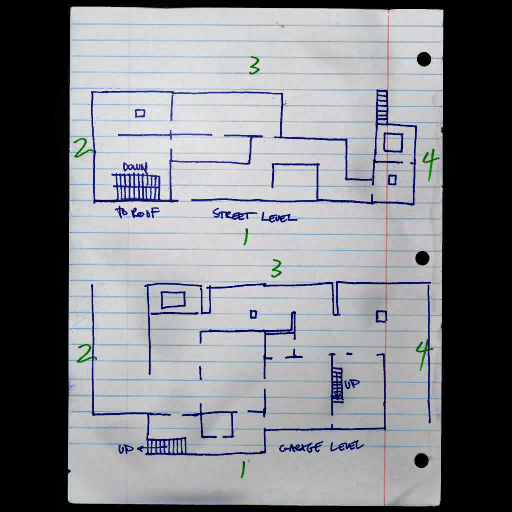 3
2
4
DOWN
TO ROOF
STREET LEVEL
1
3
2
4
UP
UP
GARAGE LEVEL
1